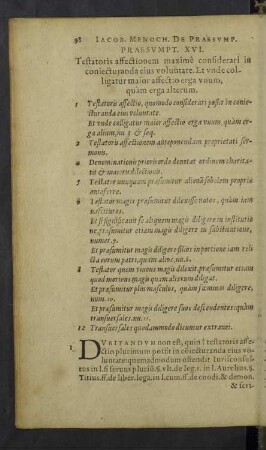 98 IACOB. MENOCH. DE PRAESVMP.
PRAESVMPT. XVI.
Testatoris affectionem maximè considerari in
coniecturanda eius voluntate. Et vnde col-
ligatur maior affectio erga vnum,
quàm erga alterum.
1 Testatoris affectio, quomodo considerari possit in conie-
cturanda eius voluntate.
Et vnde colligatur maior affectio erga vnum, quàm er-
ga alium, nu. 3. & seq.
2 Testatoris affectionem anteponendam proprietati ser-
monis.
6 Denominationis prioris ordo denotat ordinem charita-
tis & maioris dilectionis.
7 Testator nunquam præsumitur alienã sobolem propriæ
anteferre.
Testator magis præsumitur dilexisse natos, quàm
nascituros.
præsumitur magis diligere in substitutione,
numer. 9.
Et præsumitur magis diligere filios in portione iam reli-
cta eorum patri, quàm alios, nu.
8 Testator quem viuens magis dilexit, præsumitur etiam
quod moriens magis quàm alterum diligat.
Et præsumitur plus masculos, quàm fœminas diligere,
num. 10.
Et præsumitur magis diligere suos descendentes: quàm
transuersales. nu. 11.
12 Transuersales quodammodo dicuntur extranei.
1. DVBITANDVM non est, quin testatoris affe-
ctio plurimùm possit in coniecturanda eius vo-
luntate: quemadmodum ostendit Iurisconsul-
tus in l. si seruus plurium. §. vlt. de leg. 1. in l. Aurelius. §.
Titius. ff. de liber. lega. in l. cum. ff. de condi. & demon.
& scri-